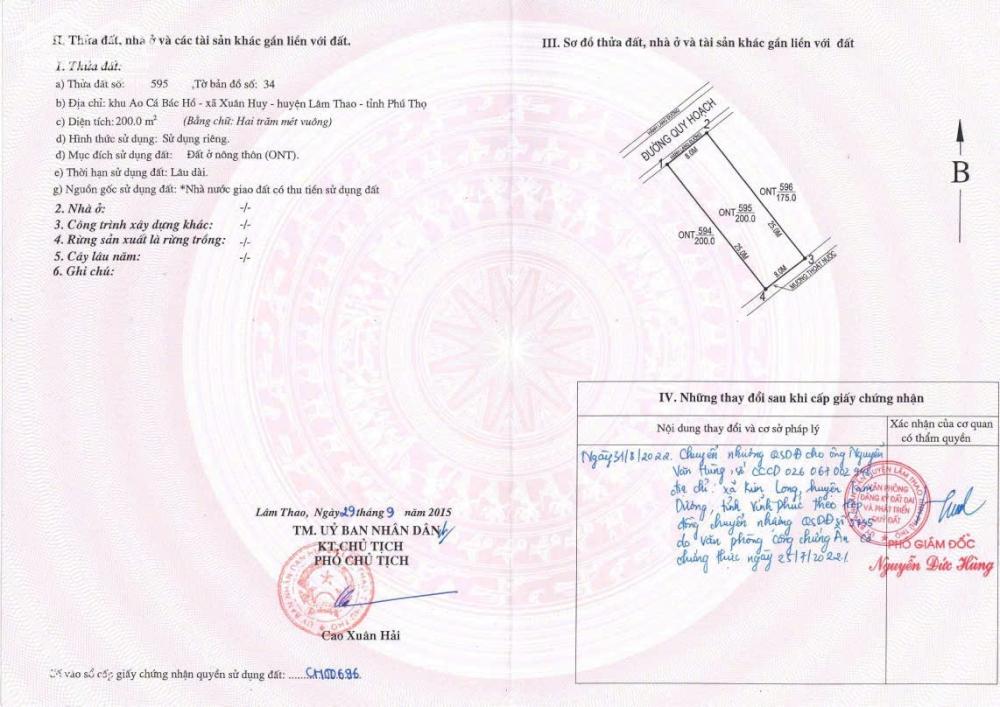 II. Thửa đất, nhà ở và các tài sản khác gắn liền với đất.
1. Thửa đất:
a) Thửa đất số: 595 ,Tờ bản đồ số: 34
b) Địa chỉ: khu Ao Cá Bác Hồ - xã Xuân Huy - huyện Lâm Thao - tỉnh Phú Thọ
c) Diện tích: 200.0 m² (Bằng chữ: Hai trăm mét vuông)
d) Hình thức sử dụng: Sử dụng riêng.
đ) Mục đích sử dụng đất: Đất ở nông thôn (ONT).
e) Thời hạn sử dụng đất: Lâu dài.
g) Nguồn gốc sử dụng đất: *Nhà nước giao đất có thu tiền sử dụng đất
2. Nhà ở: -/-
3. Công trình xây dựng khác: -/-
4. Rừng sản xuất là rừng trồng: -/-
5. Cây lâu năm: -/-
6. Ghi chú:
Lâm Thao, Ngày 29 tháng 9 năm 2015
TM. UỶ BAN NHÂN DÂN
KT.CHỦ TỊCH
PHÓ CHỦ TỊCH
Cao Xuân Hải
Số vào sổ cấp giấy chứng nhận quyền sử dụng đất: ......CH00696.
III. Sơ đồ thửa đất, nhà ở và tài sản khác gắn liền với đất
HÀNH LANG ĐƯỜNG
ĐƯỜNG QUY HOẠCH
HÀNH LANG ĐƯỜNG
1
8.0M
2
ONT 596
175.0
ONT 595
200.0
ONT 594
200.0
25.0M
25.0M
8.0M
3
4
MƯƠNG THOÁT NƯỚC
B
IV. Những thay đổi sau khi cấp giấy chứng nhận
Nội dung thay đổi và cơ sở pháp lý
Xác nhận của cơ quan
có thẩm quyền
Ngày 31/8/2022. Chuyển nhượng QSDĐ cho ông Nguyễn
Văn Hùng, số CCCD 026 067 002
địa chỉ: xã Kim Long, huyện Tam
Dương, tỉnh Vĩnh Phúc theo hợp
đồng chuyển nhượng QSDĐ số
do Văn phòng công chứng Ân
chứng thực ngày 25/7/2022/.
VĂN PHÒNG
ĐĂNG KÝ ĐẤT ĐAI
VÀ PHÁT TRIỂN
QUỸ ĐẤT
PHÓ GIÁM ĐỐC
Nguyễn Đức Hùng